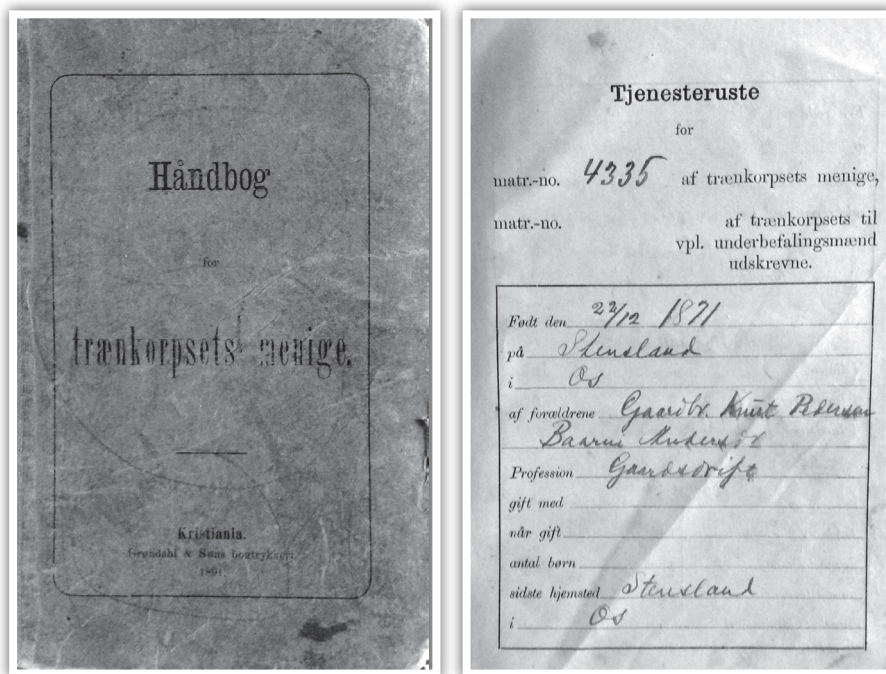 Håndbog
for
trænkorpsets menige.
Kristiania.
Grøndahl & Søns bogtrykkeri.
1891.
Tjenesteruste
for
matr.-no. 4335 af trænkorpsets menige,
matr.-no. af trænkorpsets til
vpl. underbefalingsmænd
udskrevne.
Født den 22/12 1871
på Stensland
i Os
af forældrene Gaardbr. Knut Pedersen
Profession Gaardsdrift
gift med
når gift
antal børn
sidste hjemsted Stensland
i Os